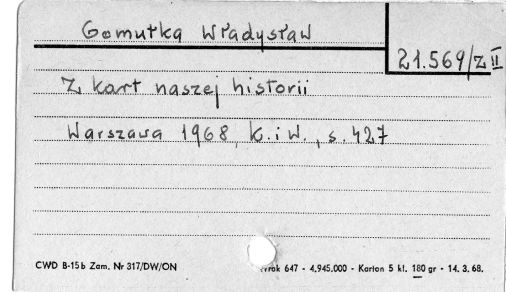 Gomułka Władysław
21.569/Z II
Z kart naszej historii
Warszawa 1968, K.i W., s. 427
CWD B-15b Zam. Nr 317/DW/ON
647 - 4,945.000 - Karton 5 kl. 180 gr - 14. 3. 68.